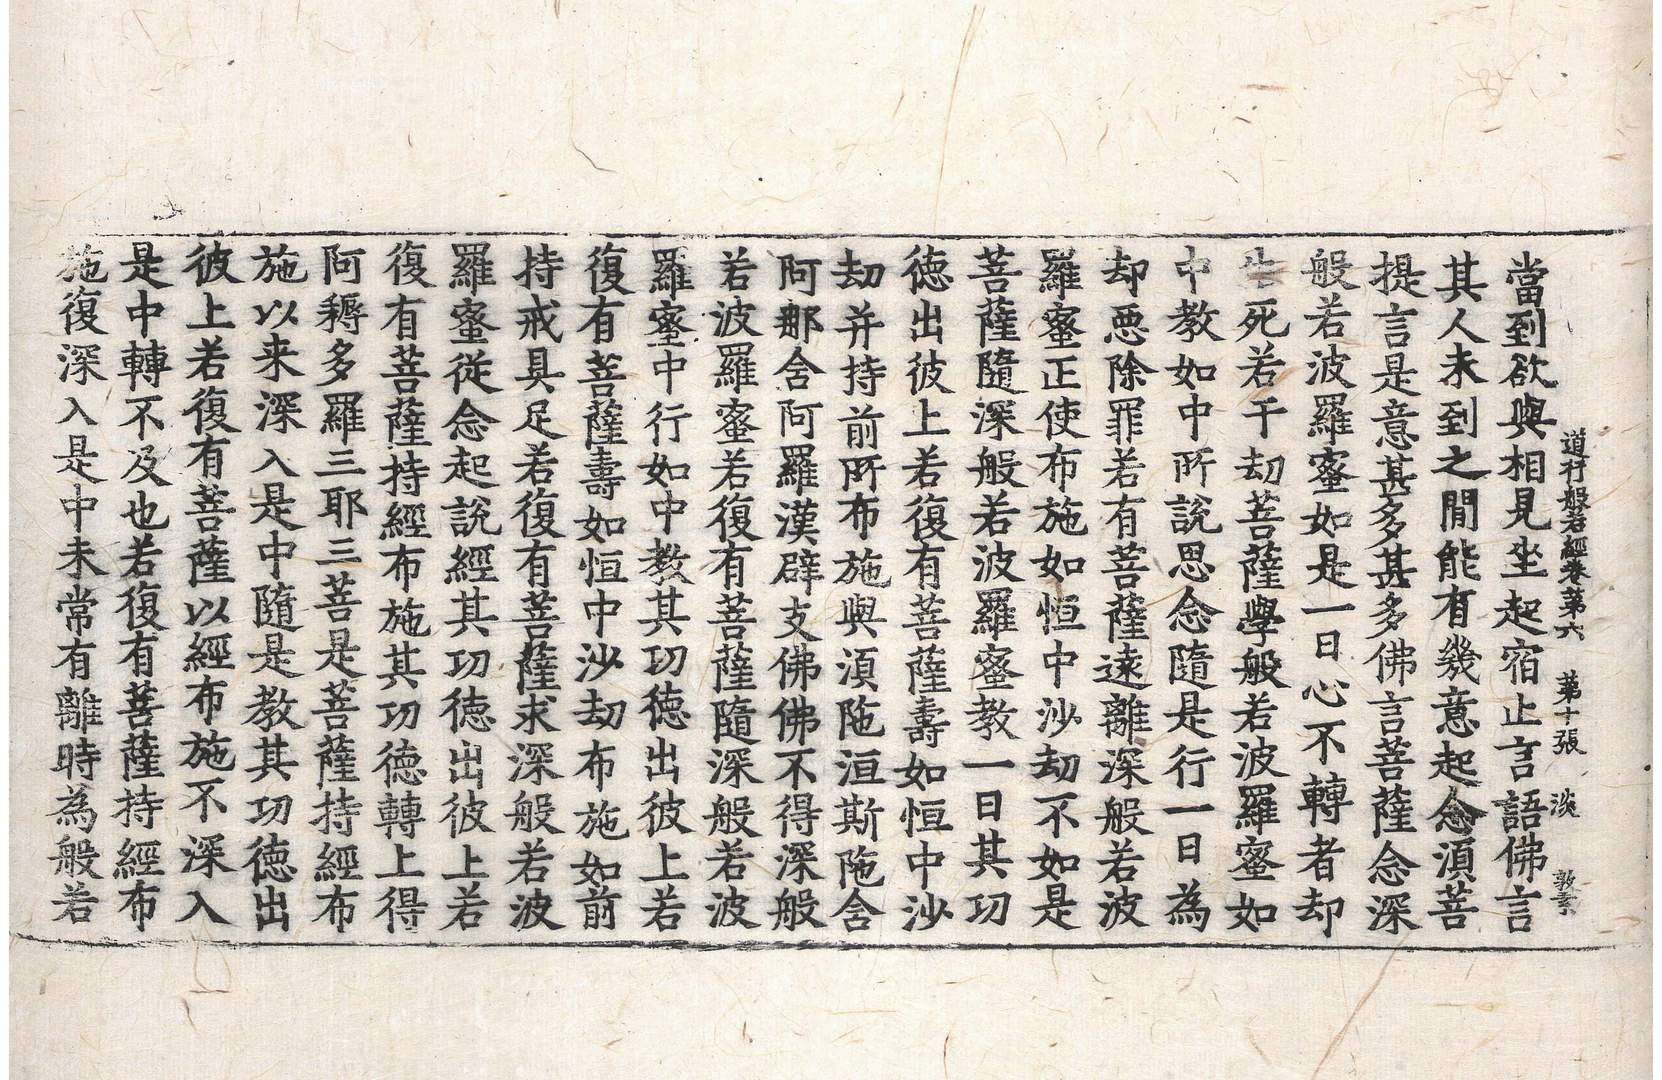 道行般若經卷第六 第十張 淡 敦素
當到欲與相見坐起宿止言語佛言
其人未到之閒能有幾意起念須菩
提言是意甚多甚多佛言菩薩念深
般若波羅蜜如是一日心不轉者却
生死若千劫菩薩學般若波羅蜜如
中教如中所說思念隨是行一日為
却惡除罪若有菩薩遠離深般若波
羅蜜正使布施如恒中沙劫不如是
菩薩隨深般若波羅蜜教一日其功
德出彼上若復有菩薩壽如恒中沙
劫并持前所布施與須陁洹斯陁含
阿那舍阿羅漢辟支佛佛不得深般
若波羅蜜若復有菩薩隨深般若波
羅蜜中行如中教其功德出彼上若
復有菩薩壽如恒中沙劫布施如前
持戒具足若復有菩薩求深般若波
羅蜜從念起說經其功德出彼上若
復有菩薩持經布施其功德轉上得
阿耨多羅三耶三菩是菩薩持經布
施以来深入是中隨是教其功德出
彼上若復有菩薩以經布施不深入
是中轉不及也若復有菩薩持經布
施復深入是中未常有離時為般若